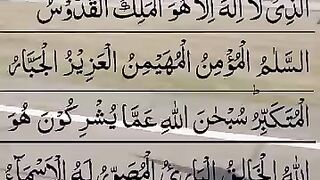 الَّذِىْ لَاۤ اِلٰهَ اِلَّا هُوَ اَلْمَلِكُ الْقُدُّوْسُ
السَّلٰمُ الْمُؤْمِنُ الْمُهَيْمِنُ الْعَزِيْزُ الْجَبَّارُ
الْمُتَكَبِّرُ سُبْحٰنَ اللّٰهِ عَمَّا يُشْرِكُوْنَ هُوَ
اللّٰهُ الْخَالِقُ الْبَارِئُ الْمُصَوِّرُ لَهُ الْاَسْمَآءُ